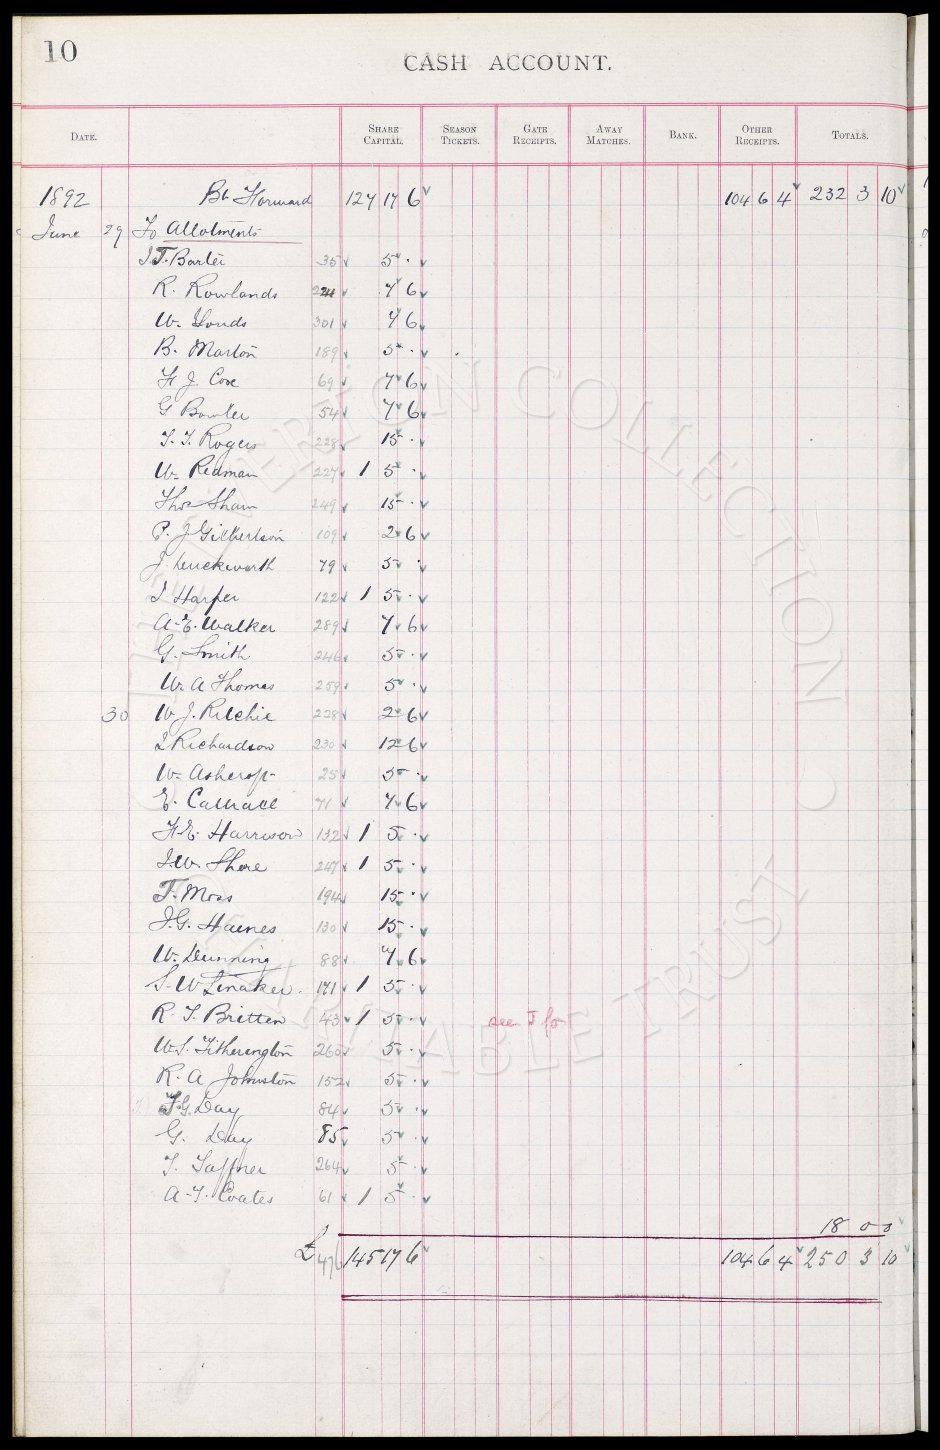 10
CASH ACCOUNT.
DATE. SHARE CAPITAL. SEASON TICKETS. GATE RECEIPTS. AWAY MATCHES. BANK. OTHER RECEIPTS. TOTALS.
1892 Bt Forward 127 17 6 104 6 4 232 3 10
June 29 To Allotments
J.T. Barter 35 5 ·
R. Rowlands 7 6
W. 301 7 6
B. Marton 189 5 ·
H J. Coxe 69 7 6
G Bowler 54 7 6
T. T. Rogers 228 15 ·
W. Redman 227 1 5 ·
Thos Sham 249 15 ·
P. J Gilbertson 109 2 6
J. Duckworth 79 5 ·
J Harper 122 1 5 ·
A. E. Walker 289 7 6
G. Smith 246 5 ·
W. A Thomas 259 5 ·
30 W J. Ritchie 228 2 6
J Richardson 230 12 6
W. Ashcroft 25 5 ·
E. Cattrall 71 7 6
H. E. Harrison 132 1 5 ·
J. W. Shore 247 1 5 ·
T. Moss 194 15 ·
J. G. Haines 130 15 ·
W. Dunning 88 7 6
S. W Linaker. 171 1 5 ·
R. T. Britten 43 1 5 ·
W. S. Titherington 260 5 ·
R. A Johnston 152 5 ·
T. G. Day 84 5 ·
G. Day 85 5 ·
T. Taffner 264 5 ·
A. T. Coates 61 1 5 ·
18 0 0
£ 476 145 17 6 104 6 4 250 3 10
EVERTON COLLECTION CHARITABLE TRUST